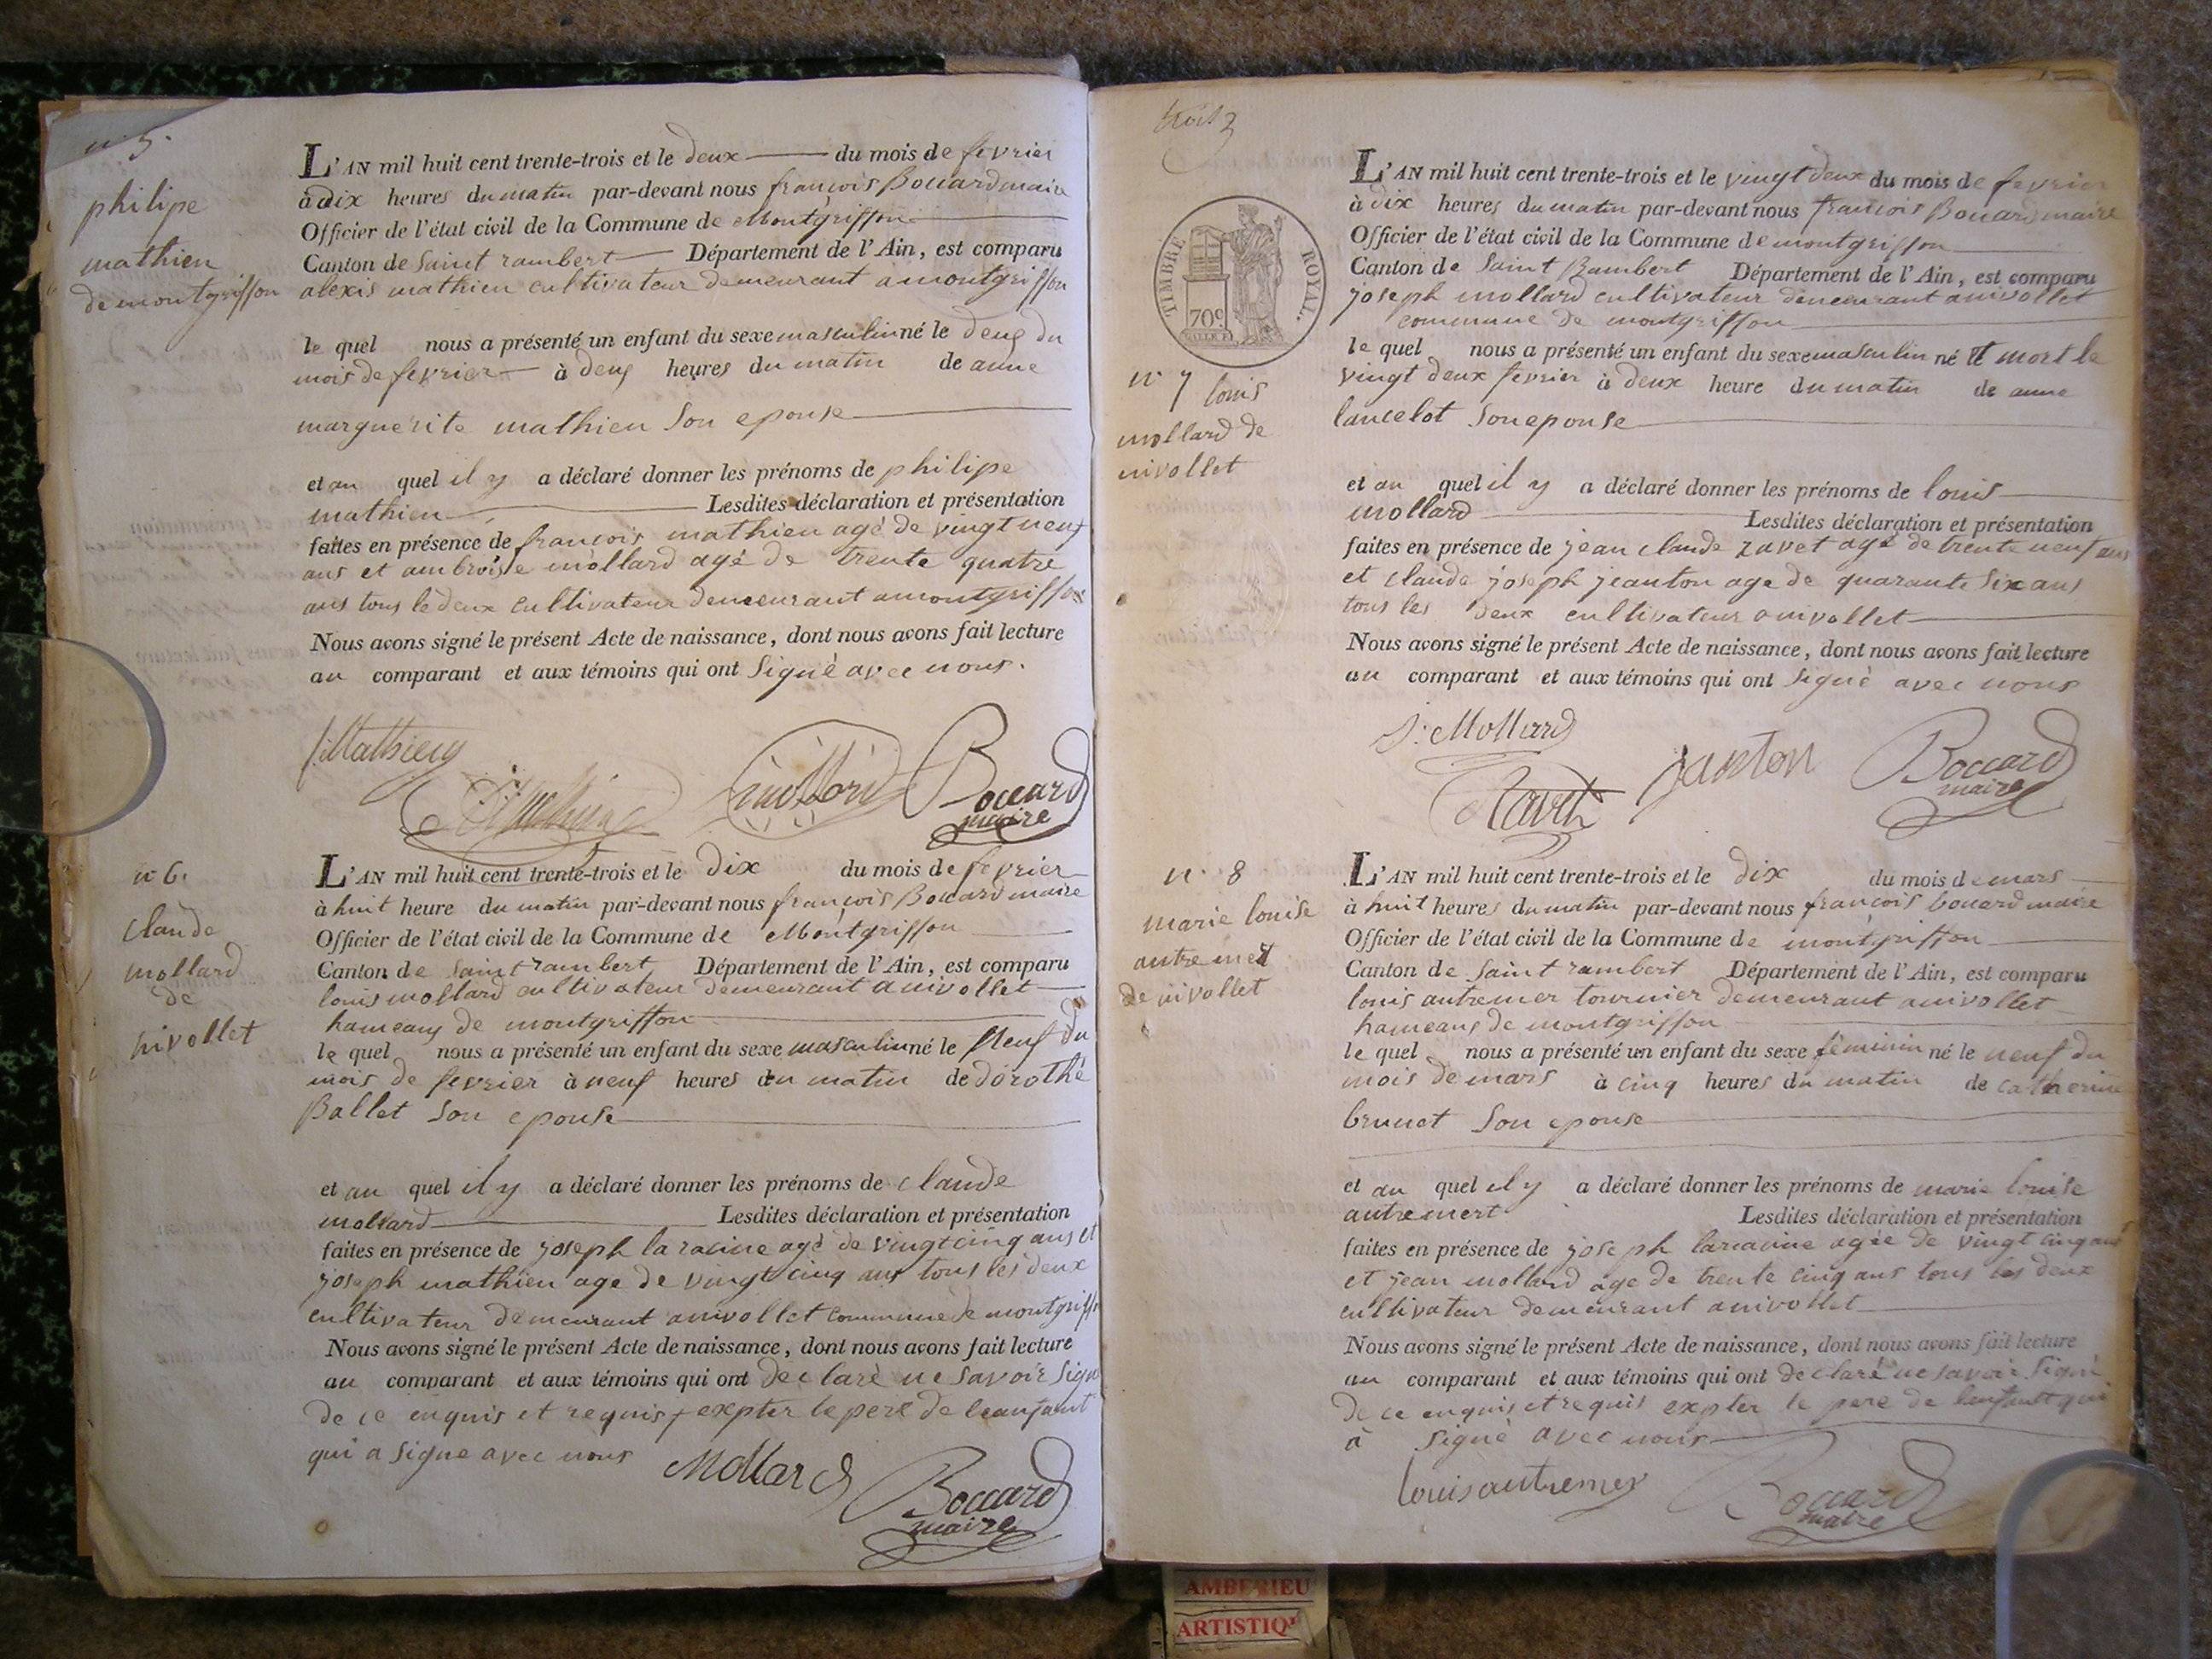 n° 5.
philipe
mathieu
de montgriffon
L'AN mil huit cent trente-trois et le deux du mois de fevrier
à dix heures du matin par-devant nous françois Bouard maire
Officier de l'état civil de la Commune de Montgriffon
Canton de Saint rambert Département de l'Ain, est comparu
alexis mathieu cultivateur demeurant a montgriffon
le quel nous a présenté un enfant du sexe masculin né le deux du
mois de fevrier à deux heures du matin de anne
marguerite mathieu Son epouse
et au quel il y a déclaré donner les prénoms de philipe
mathieu Lesdites déclaration et présentation
faites en présence de françois mathieu agé de vingt neuf
ans et ambroise mollard agé de trente quatre
ans tous le deux cultivateur demeurant a montgriffon
Nous avons signé le présent Acte de naissance, dont nous avons fait lecture
au comparant et aux témoins qui ont Signé avec nous.
Mathieu
Bouard
maire
n° 6.
Claude
mollard
de
nivollet
L'AN mil huit cent trente-trois et le Dix du mois de fevrier
à huit heure du matin par-devant nous françois Bouard maire
Officier de l'état civil de la Commune de Montgriffon
Canton de Saint rambert Département de l'Ain, est comparu
louis mollard cultivateur demeurant a nivollet
hameaux de montgriffon
le quel nous a présenté un enfant du sexe masculin né le Neuf du
mois de fevrier à neuf heures du matin de dorothé
Ballet Son epouse
et au quel il y a déclaré donner les prénoms de claude
mollard Lesdites déclaration et présentation
faites en présence de joseph la racine agé de vingt cinq ans et
joseph mathieu age de vingt cinq ans tous les deux
cultivateur demeurant a nivollet commune de montgriffon
Nous avons signé le présent Acte de naissance, dont nous avons fait lecture
au comparant et aux témoins qui ont declaré ne Savoir Signé
de ce enquis et requis expter le pere de leanfant
qui a Signe avec nous
Mollard
Bouard
maire
trois 3
TIMBRE ROYAL.
70c
L'AN mil huit cent trente-trois et le vingt deux du mois de fevrier
à dix heures du matin par-devant nous françois Bouard maire
Officier de l'état civil de la Commune de montgriffon
Canton de Saint Rambert Département de l'Ain, est comparu
joseph mollard cultivateur demeurant a nivollet
commune de montgriffon
le quel nous a présenté un enfant du sexe masculin né et mort le
vingt deux fevrier à deux heure du matin de anne
lancelot Son epouse
n° 7 louis
mollard de
nivollet
et au quel il y a déclaré donner les prénoms de louis
mollard Lesdites déclaration et présentation
faites en présence de jean claude ravet agé de trente neuf ans
et claude joseph jeanton age de quarante Six ans
tous les deux cultivateur a nivollet
Nous avons signé le présent Acte de naissance, dont nous avons fait lecture
au comparant et aux témoins qui ont Signé avec nous
J. Mollard
Janton
Bouard
maire
Ravet
n° 8
marie louise
autremert
de nivollet
L'AN mil huit cent trente-trois et le Dix du mois de mars
à huit heures du matin par-devant nous françois bouard maire
Officier de l'état civil de la Commune de montgriffon
Canton de Saint rambert Département de l'Ain, est comparu
louis autremer tournier demeurant a nivollet
hameaus de montgriffon
le quel nous a présenté un enfant du sexe féminin né le neuf du
mois de mars à cinq heures du matin de catherine
brunet Son epouse
et au quel il y a déclaré donner les prénoms de marie louise
autremert Lesdites déclaration et présentation
faites en présence de joseph laracine agée de vingt cinq ans
et jean mollard age de trente cinq ans tous les deux
cultivateur demeurant a nivollet
Nous avons signé le présent Acte de naissance, dont nous avons fait lecture
au comparant et aux témoins qui ont declaré ne savoir Signé
De ce enquis et requis expter le pere de lenfant qui
à Signé avec nous
louis autremer
Bouard
maire
AMBERIEU
ARTISTIQU